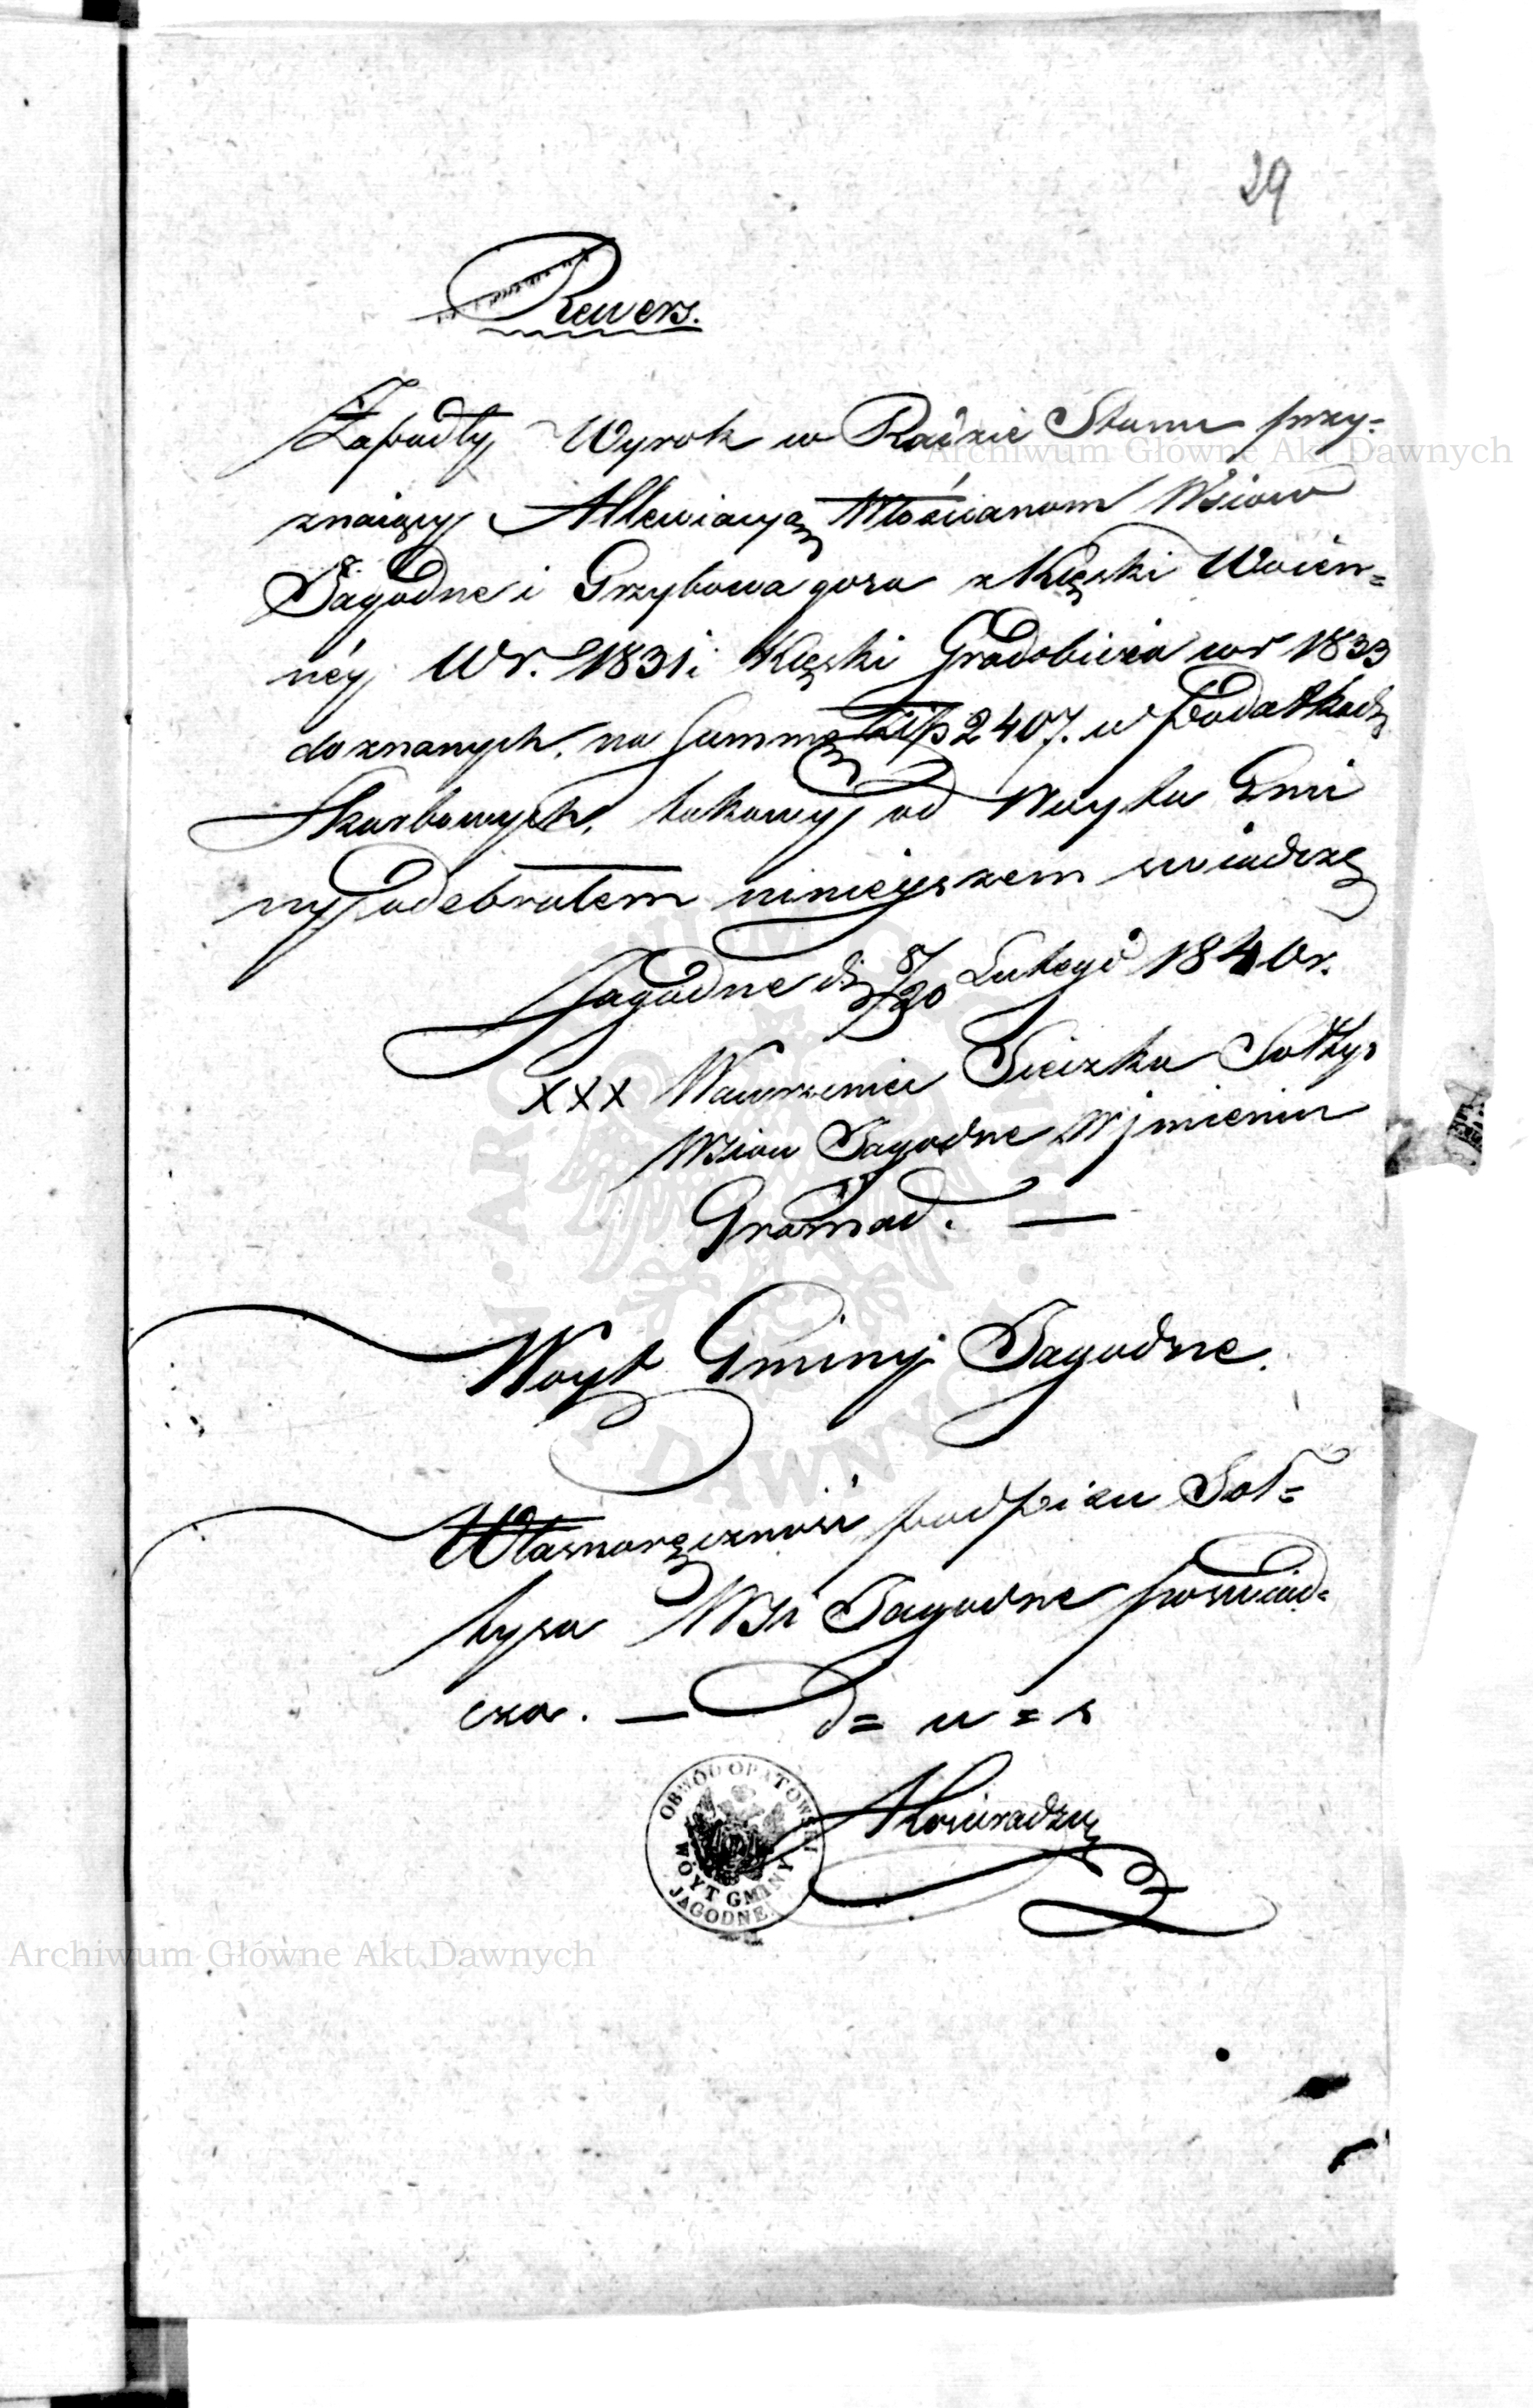 29
Rewers.
Zapadły Wyrok w Radzie Stanu przy-
znaiący Allewiacyą Włościanom Wsiow
Jagodne i Grzybowa gora z Klęski Woien=
néy Wr. 1831 i Klęski Gradobicia w r 1833
doznanych, na Summę Złp 2407. w Podatkach
Skarbowych, takowy od Woyta Gmi
ny odebrałem niniejszem swiadczę
Jagodne d. 8/20 Lutego 1840 r.
XXX Wawrzeniec Sieczka Sołtys
Wsiow Jagodne Wjmieniu
Gromad. —
Woyt Gminy Jagodne.
Własnoręczność podpisu Soł=
tysa Wsi Jagodne poswiad=
cza. — d = u = s
OBWÓD OPATOWSKI
WÓYT GMINY
JAGODNE
Archiwum Główne Akt Dawnych
Archiwum Główne Akt Dawnych